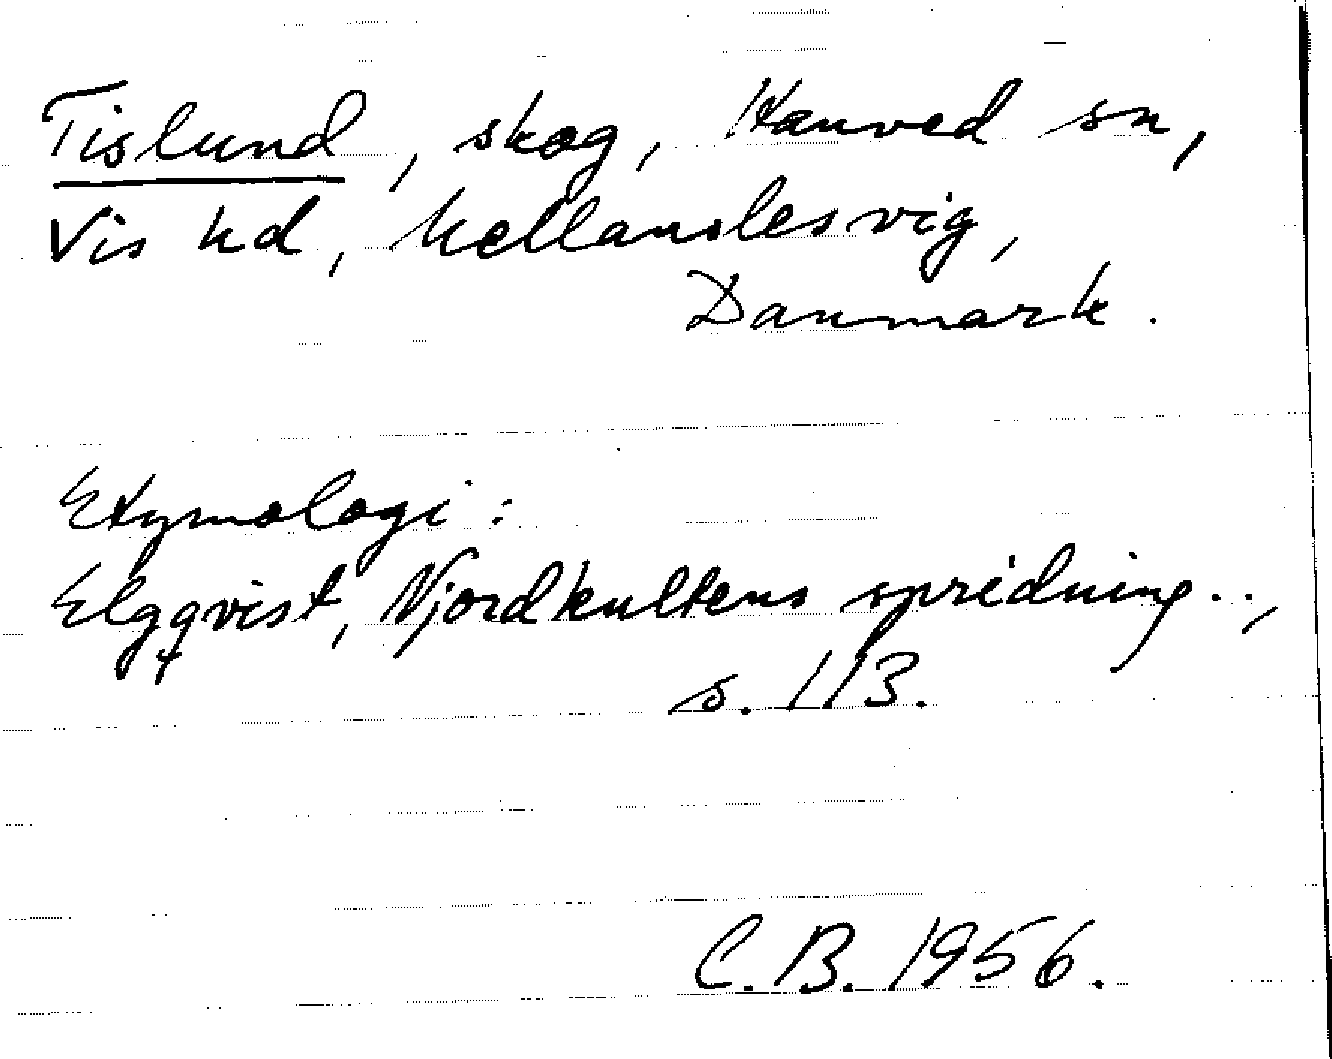 Tislund, skog, Hanved sn,
Vis hd, Mellanslesvig,
Danmark.
Etymologi:
Elgqvist, Njordkultens spridning..,
s. 113.
C.B. 1956.